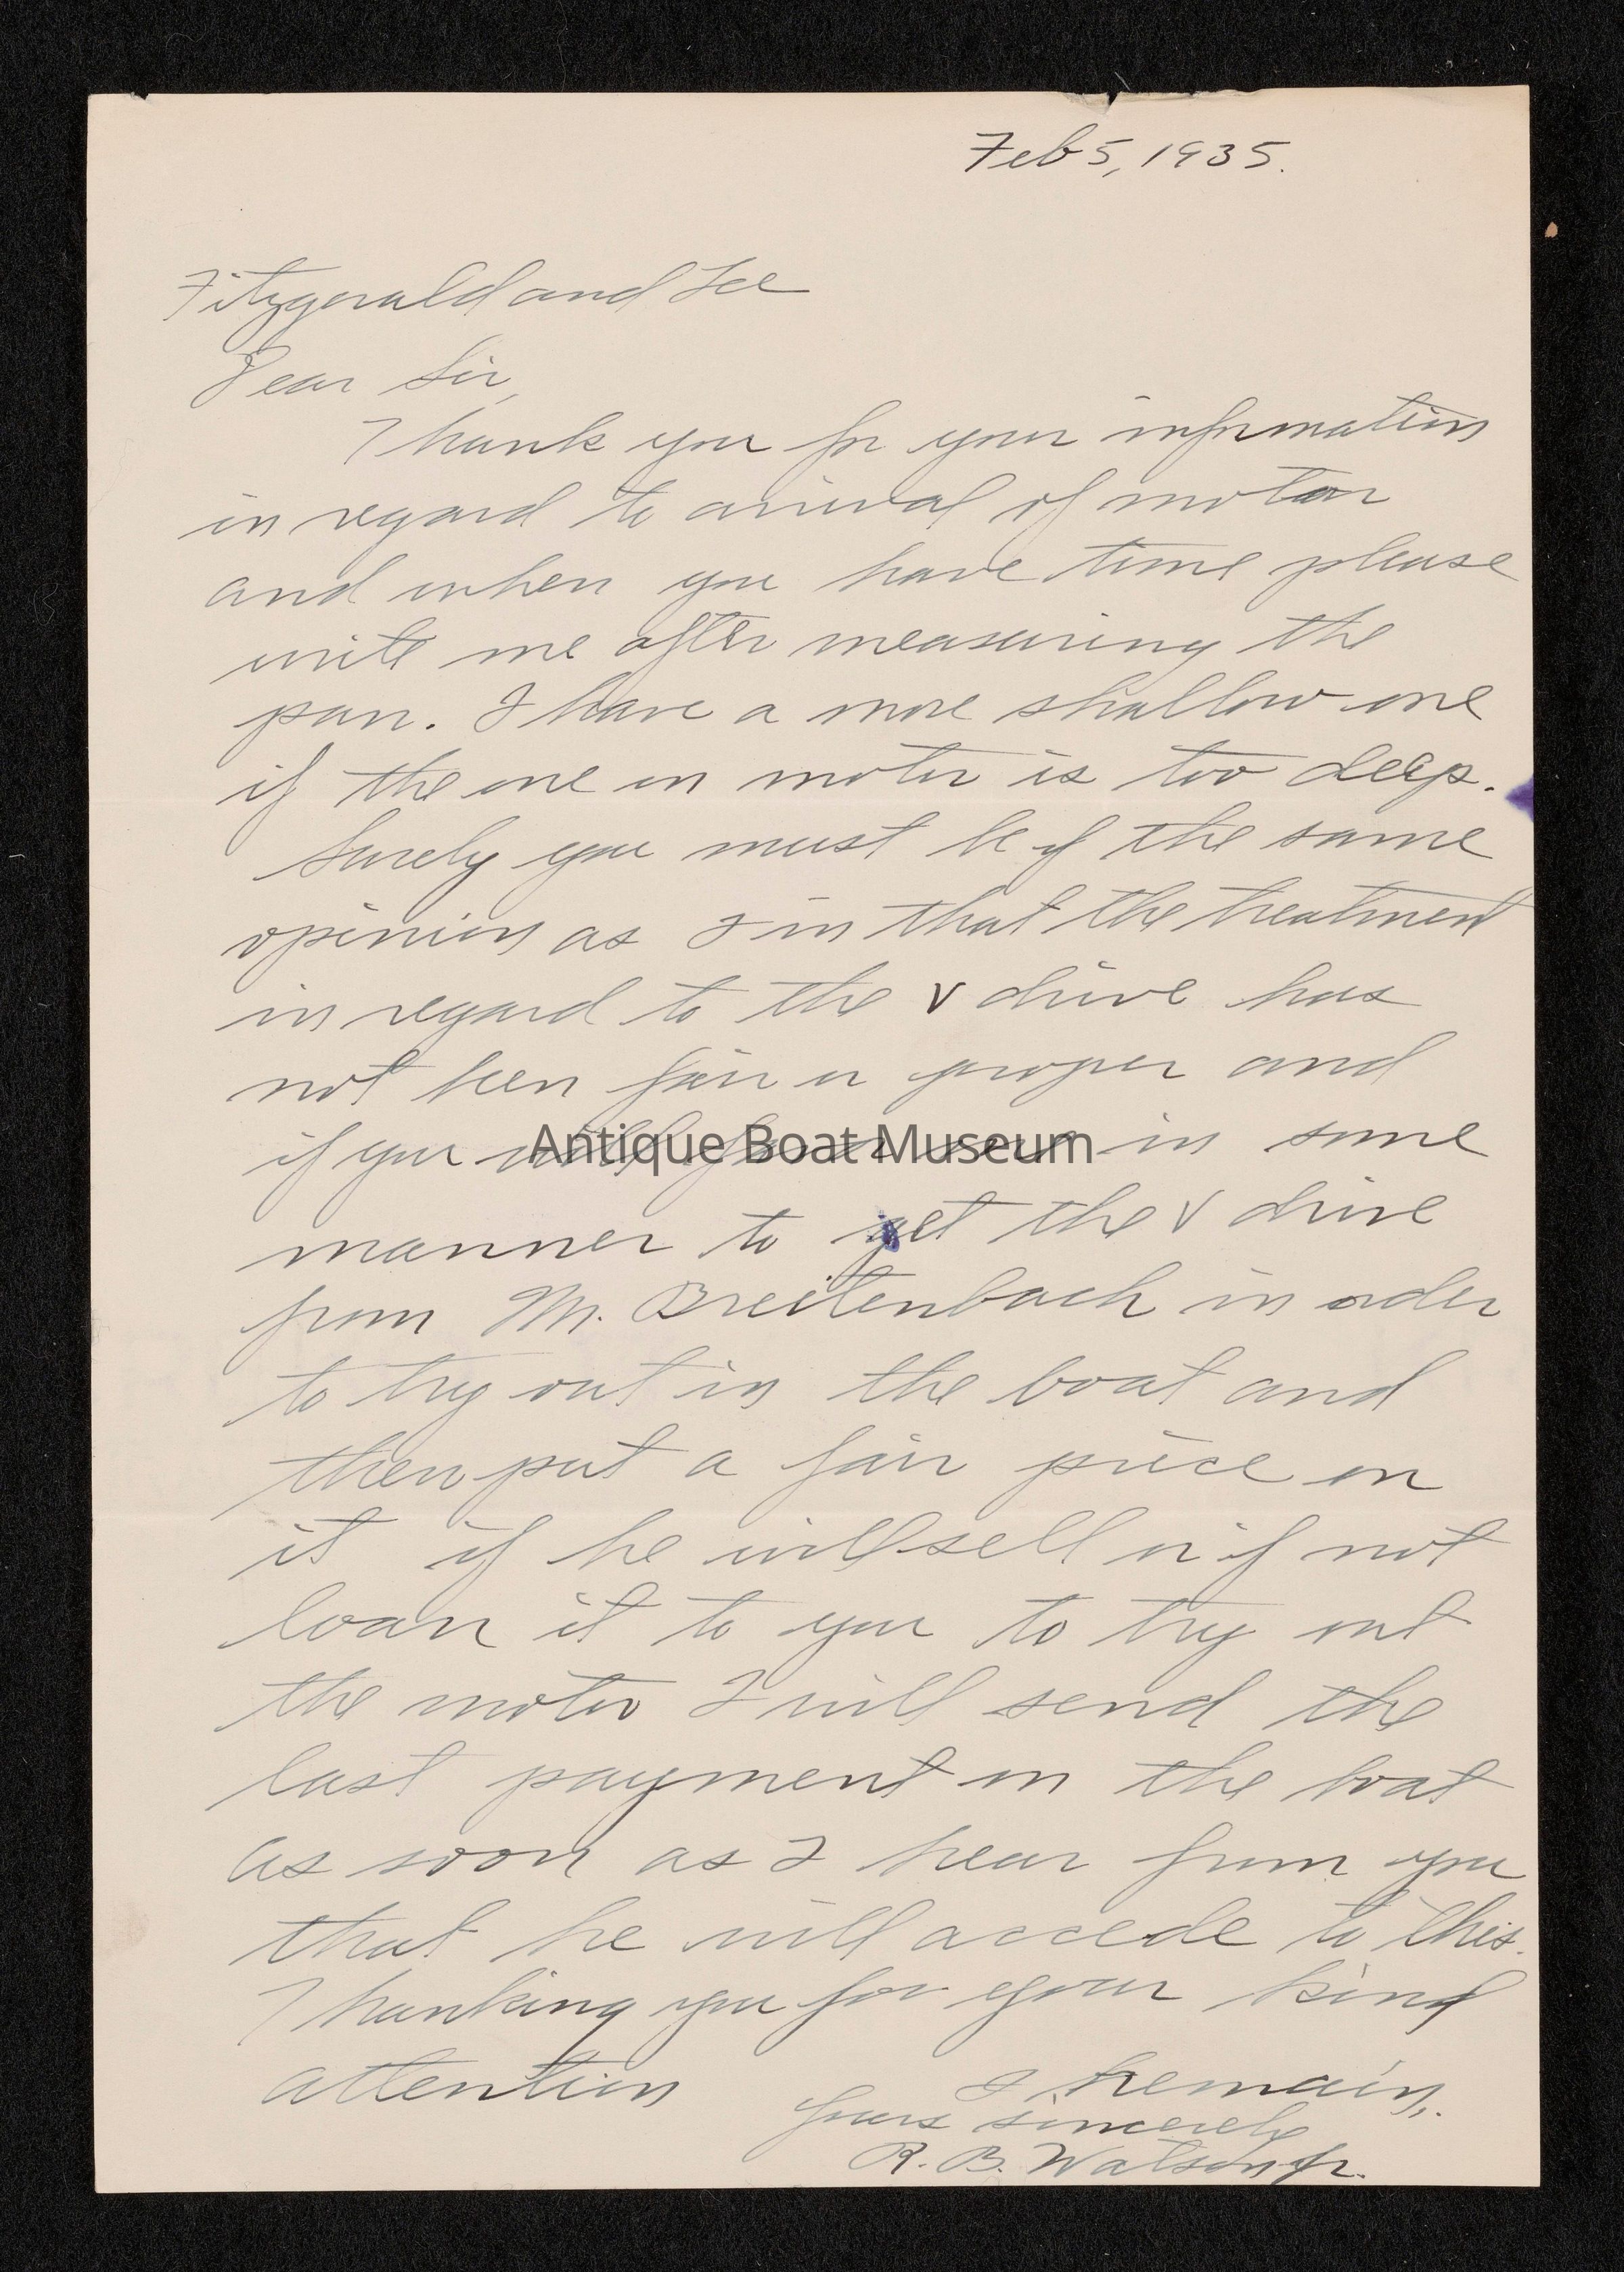 Feb 5, 1935.
Fitzgerald and Lee
Dear Sir,
Thank you for your information
in regard to arrival of motor
and when you have time please
write me after measuring the
pan. I have a more shallow one
if the one on motor is too deep.
Surely you must be of the same
opinion as I in that the treatment
in regard to the V drive has
not been fair or proper and
if you will in some
Antique Boat Museum
manner to get the V drive
from M. Breitenbach in order
to try out in the boat and
then put a fair price on
it if he will sell or if not
loan it to you to try out
the motor I will send the
last payment on the boat
as soon as I hear from you
that he will accede to this.
Thanking you for your kind
attention
I remain,
Yours sincerely
R. B. Watson Jr.